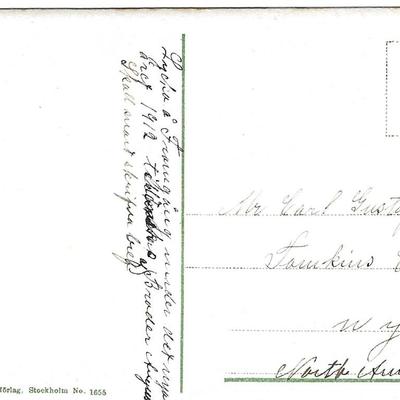 Lycka å Framgång under det nya
året 1912 tillönskas af Broder Augus
(Skall snart skrifva bref)
Mr Carl Gustaf
Tomkins
N Y
North Am
förlag, Stockholm No. 1655